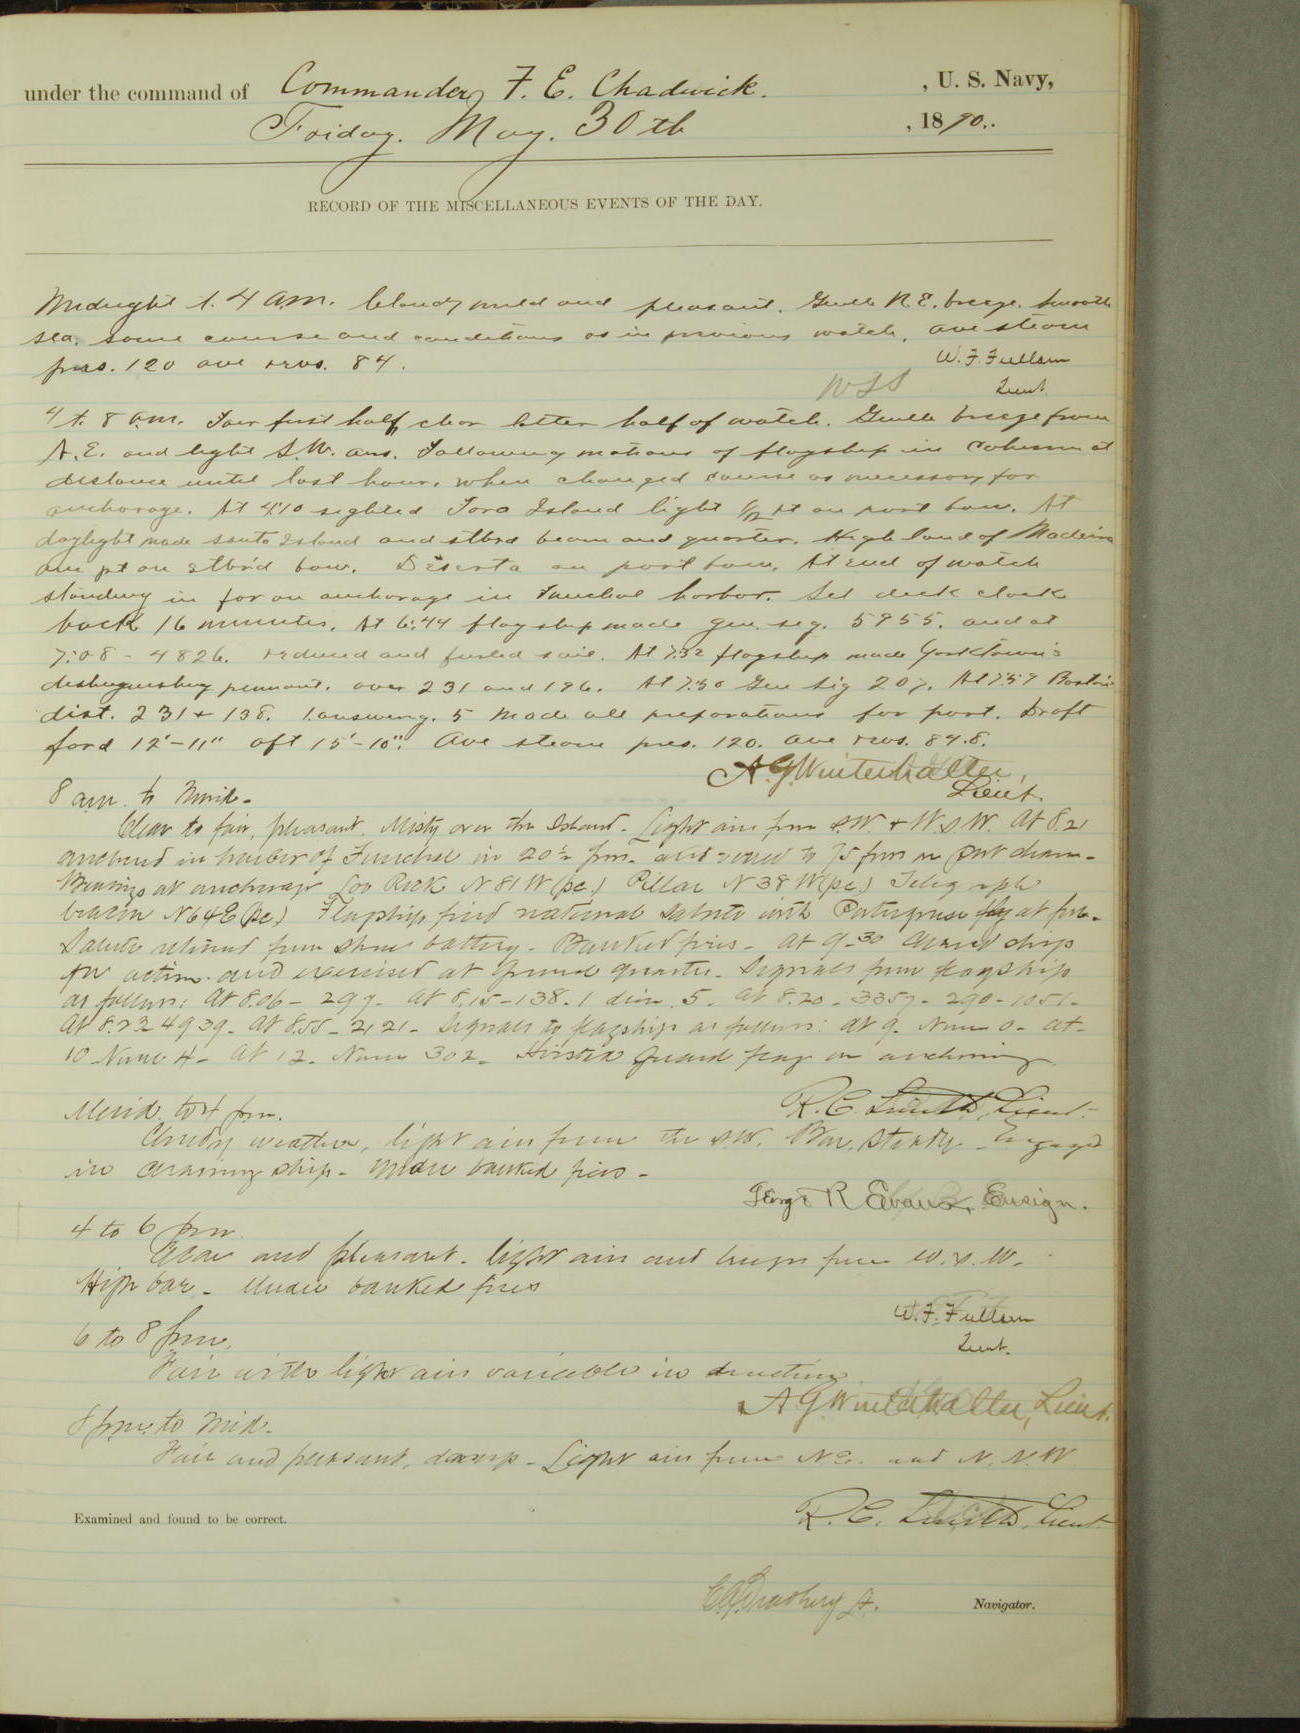 under the command of Commander F. E. Chadwick. , U. S. Navy,
Friday. May. 30th , 1890..
RECORD OF THE MISCELLANEOUS EVENTS OF THE DAY.
Midnight to 4 am. Cloudy mild and pleasant. Gentle N.E. breeze. Smooth
sea. same course and conditions as in previous watch. ave steam
pres. 120 ave revs. 84.
W. F. Fullam
Lieut.
4 to 8 a.m. Fair first half, clear latter half of watch. Gentle breeze from
N.E. and light S.W. airs. Following motions of flagship in column at
distance until last hour, when changed course as necessary for
anchorage. At 4:10 sighted Fora Island light 1/2 pt on port bow. At
daylight made Santo Island and stbrd beam and quarter. High land of Madeira
one pt on stbrd bow. Deserta on port bow. At end of watch
standing in for an anchorage in Funchal harbor. Set deck clock
back 16 minutes. At 6:44 flagship made gen. sig. 5955. and at
7:08 - 4826. reduced and furled sail. At 7:32 flagship made Yorktown's
distinguishing pennant. over 231 and 196. At 7:50 Gen Sig 207. At 7:57 Boston's
dist. 231 + 138. 1. answering. 5 Made all preparations for port. Draft
for'd 12'-11" aft 15'-10". Ave steam pres. 120. ave revs. 84.8.
A. G. Winterhalter,
Lieut.
8 am. to Merid.
Clear to fair, pleasant. Misty over the Island. Light airs from S.W. + W.S.W. At 8.21
anchored in harbor of Funchal in 20½ fms. and veered to 75 fms on port chain.
Bearings at anchorage Loo Rock N 81 W (pc.) Pillar N 38 W (pc.) Telegraph
beacon N 64 E (pc.) Flagship fired national salute with Portuguese flag at fore.
Salute returned from shore battery. Banked fires. At 9.30 cleared ship
for action. and exercised at general quarters. Signals from flagship
as follows: At 8.06 - 297. At 8.15 - 138. 1 5. At 8.20. 3357 - 290 - 1051.
At 8.23 4939. At 8.55 - 2121. Signals to flagship as follows: at 9. Num 0. at
10 Num 4 - At 12. Num 302. Hoisted guard flag on anchoring
R. C. Smith, Lieut.
Merid. to 4 pm.
Cloudy weather, light airs from the S.W. Bar. steady. Engaged
in cleaning ship. Under banked fires.
George R Evans, Ensign.
4 to 6 pm.
Clear and pleasant. light airs and breeze from W.S.W.
High bar. Under banked fires
W. F. Fullam
Lieut.
6 to 8 pm.
Fair with light airs variable in direction
A. G. Winterhalter, Lieut.
8 pm. to Mid.
Fair and pleasant, damp. Light airs from N.E. and N.N.W
R. C. Smith, Lieut.
Examined and found to be correct.
Navigator.